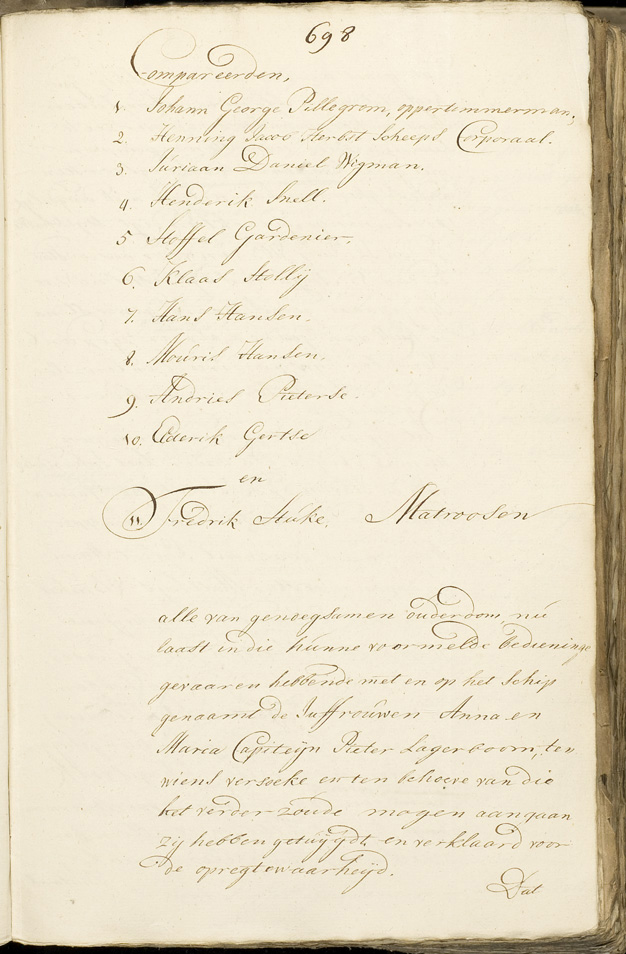 698
Compareerden,
1. Johann George Pellegrom, oppertemmerman,
2. Henning Herbst Scheeps Corporaal.
3. Juriaan Daniel Wigman.
4. Henderik Snell.
5 Stoffel Gardenier,
6. Klaas Stollij
7. Hans Hansen.
8. Mouris Hansen,
9. Andries Pieterse.
10. Elderik Gertse
en
11. Fredrik Stuke. Matroosen
alle van genoegsamen ouderdom, nu
laast in die hunne voormelde bedieninge
gevaaren hebbende met en op het Schip
genaamt de Juffrouwen Anna en
Maria Capiteijn Pieter Lagerboom, ten
wiens versoeke en ten behoeve van die
het verder zoude mogen aangaan
zij hebben getuygdt en verklaard voor
de opregte waarheijd.
Dat